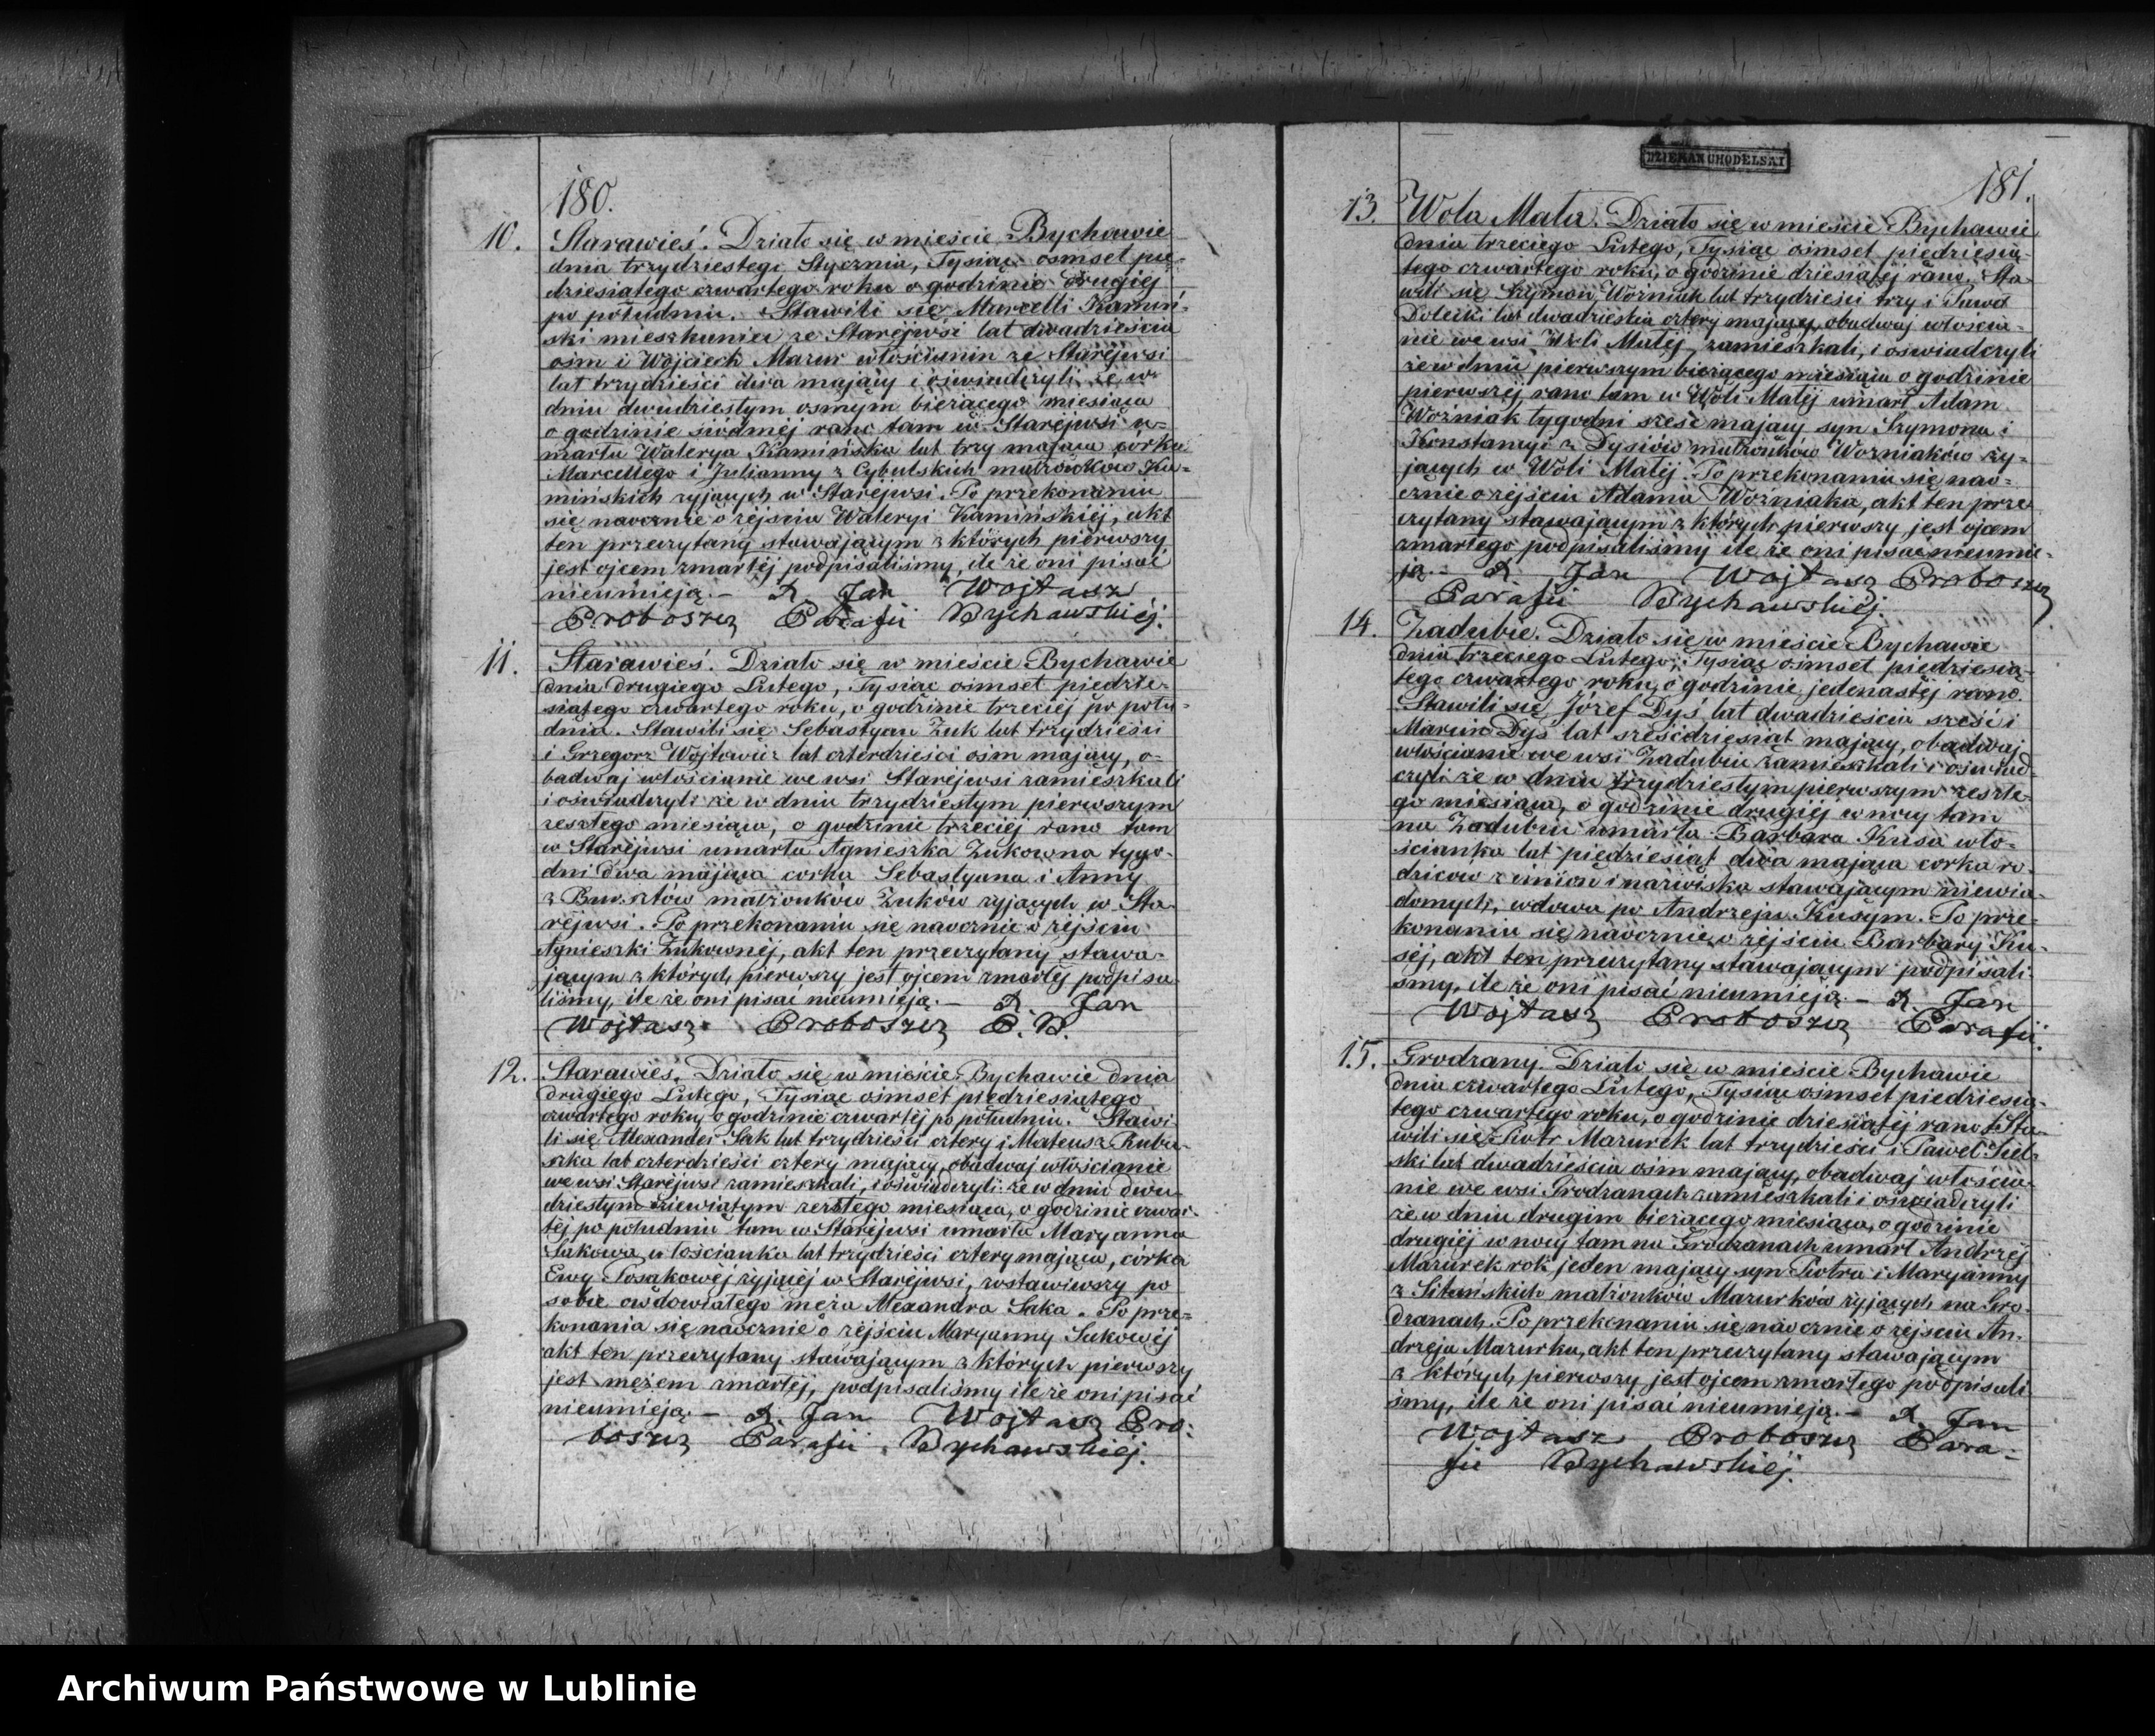 180.
10. Starawieś. Działo się w mieście Bychawie
dnia trzydziestego Stycznia, Tysiąc ośmset pię-
dziesiątego czwartego roku o godzinie drugiéj
po południu. Stawili się Marcelli Kamiń-
ski mieszkaniec ze Staréjwsi lat dwadzieścia
ośm i Wojciech Mazur włościanin ze Staréjwsi
lat trzydzieści dwa mający i oświadczyli że w
dniu dwudziestym osmym bieżącego miesiąca
o godzinie siódméj rano tam w Staréjwsi u-
marła Walerya Kamińska lat trzy mająca córka
Marcellego i Julianny z Cybulskich małżonków Ka-
mińskich żyjących w Staréjwsi. Po przekonaniu
się naocznie o zéjściu Waleryi Kamińskiéj, akt
ten przeczytany stawającym z których piérwszy
jest ojcem zmarłéj podpisaliśmy, ile że oni pisać
nieumieją. — X. Jan Wojtasz
Proboszcz Parafii Bychawskiéj.
11. Starawieś. Działo się w mieście Bychawie
dnia drugiego Lutego, Tysiąc ośmset piędzie-
siątego czwartego roku, o godzinie trzeciéj po połu-
dniu. Stawili się Sebastyan Żuk lat trzydzieści
i Grzegorz Wójtowicz lat czterdzieści ośm mający, o-
badwaj włościanie we wsi Staréjwsi zamieszkali
i oświadczyli że w dniu trzydziestym pierwszym
zeszłego miesiąca, o godzinie trzeciéj rano tam
w Staréjwsi umarła Agnieszka Żukowna tygo-
dni dwa mająca corka Sebastyana i Anny
z małżonków Żuków żyjących w Sta-
réjwsi. Po przekonaniu się naocznie o zéjściu
Agnieszki Żukownéj, akt ten przeczytany stawa-
jącym z których pierwszy jest ojcem zmarłéj podpisa-
liśmy, ile że oni pisać nieumieją. — X. Jan
Wojtasz Proboszcz P. B.
12. Starawieś. Działo się w mieście Bychawie dnia
drugiego Lutego, Tysiąc ośmset piędziesiątego
czwartego roku, o godzinie czwartéj po południu. Stawi-
li się Alexander Sak lat trzydzieści cztery i Mateusz
lat czterdzieści cztery mający, obadwaj włościanie
we wsi Staréjwsi zamieszkali, i oświadczyli że w dniu dwu-
dziestym dziewiątym zeszłego miesiąca, o godzinie czwar-
téj po południu tam w Staréjwsi umarła Maryanna
Sakowa włościanka lat trzydzieści cztery mająca, córka
Ewy żyjącéj w Staréjwsi, zostawiwszy po
sobie owdowiałego męża Alexandra Saka. Po prze-
konaniu się naocznie o zéjściu Maryanny Sakowéj
akt ten przeczytany stawającym z których pierwszy
jest mężem zmarłéj, podpisaliśmy ile że oni pisać
nieumieją. — X. Jan Wojtasz Pro-
boszcz Parafii Bychawskiéj.
181.
13. Wola Mała. Działo się w mieście Bychawie
dnia trzeciego Lutego, Tysiąc ośmset piędziesią-
tego czwartego roku, o godzinie dziesiątéj rano. Sta-
wili się Szymon Woźniak lat trzydzieści trzy i Paweł
lat dwadzieścia cztery mający, obadwaj włościa-
nie we wsi Woli Małéj zamieszkali, i oświadczyli
że w dniu pierwszym bieżącego miesiąca o godzinie
pierwszéj rano tam w Woli Małéj umarł Adam
Woźniak tygodni sześć mający syn Szymona i
Konstancyi z Dysiów małżonków Woźniaków ży-
jących w Woli Małéj. Po przekonaniu się nao-
cznie o zéjściu Adama Woźniaka, akt ten prze-
czytany stawającym z których pierwszy jest ojcem
zmarłego podpisaliśmy ile że oni pisać nieumie-
ją. — X. Jan Wojtasz Proboszcz
Parafii Bychawskiéj.
14. Zadubie. Działo się w mieście Bychawie
dnia trzeciego Lutego, Tysiąc ośmset piędziesią-
tego czwartego roku, o godzinie jedenastéj rano.
Stawili się Józef Dyś lat dwadzieścia sześć i
Marcin Dyś lat sześćdziesiąt mający, obadwaj
włościanie we wsi Zadubiu zamieszkali i oświad-
czyli że w dniu trzydziestym pierwszym zeszłe-
go miesiąca, o godzinie drugiéj w nocy tam
na Zadubiu umarła Barbara Kusa wło-
ścianka lat piędziesiąt dwa mająca corka ro-
dziców z imion i nazwiska stawającym niewia-
domych, wdowa po Andrzeju Kusym. Po prze-
konaniu się naocznie o zéjściu Barbary Ku-
séj, akt ten przeczytany stawającym podpisali-
śmy, ile że oni pisać nieumieją. — X. Jan
Wojtasz Proboszcz Parafii.
15. Grodzany. Działo się w mieście Bychawie
dnia czwartego Lutego, Tysiąc ośmset piędziesią-
tego czwartego roku, o godzinie dziesiątéj rano. Sta-
wili się Piotr Mazurek lat trzydzieści i Paweł Siel-
ski lat dwadzieścia ośm mający, obadwaj włościa-
nie we wsi Grodzanach zamieszkali i oświadczyli
że w dniu drugim bieżącego miesiąca, o godzinie
drugiéj w nocy tam na Grodzanach umarł Andrzéj
Mazurek rok jeden mający syn Piotra i Maryanny
z małżonków Mazurków żyjących na Gro-
dzanach. Po przekonaniu się naocznie o zejściu An-
drzeja Mazurka, akt ten przeczytany stawającym
z których pierwszy jest ojcem zmarłego podpisali-
śmy, ile że oni pisać nieumieją. — X. Jan
Wojtasz Proboszcz Para-
fii Bychawskiéj.
Archiwum Państwowe w Lublinie